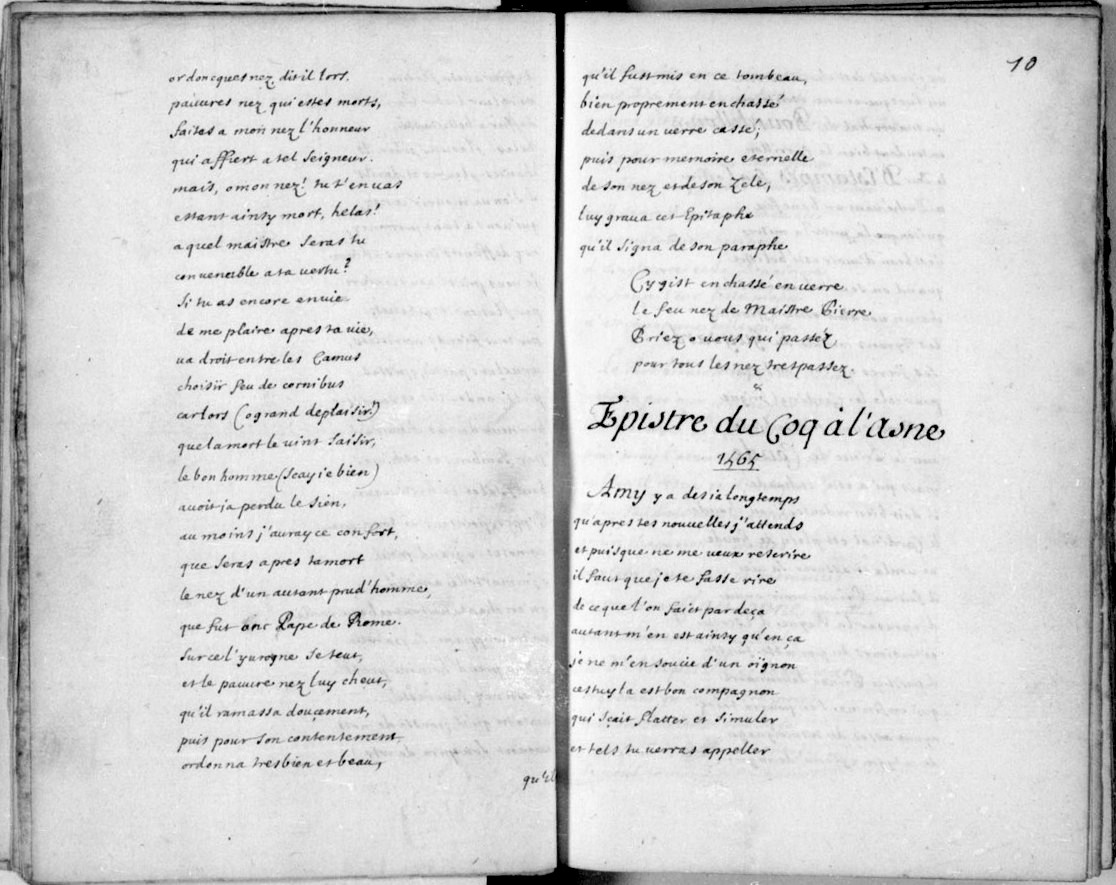 or doncques nez dit il lors.
pauures nez qui estes morts,
faites a mon nez l'honneur
qui affiert a tel seigneur.
mais, o mon nez! tu t'en vas
estant ainsy mort, helas!
a quel maistre seras tu
convenable a ta vertu?
Si tu as encore envie
de me plaire apres ta vie,
va droit entre les Camus
choisir feu de cornibus
car lors (o grand deplaisir!)
que la mort le vint saisir,
le bon homme (scay ie bien)
avoit ja perdu le sien,
au moins j'auray ce confort,
que seras apres ta mort
le nez d'un autant prud'homme,
que fut onc Pape de Rome.
Sur ce l'yurogne se teut,
et le pauure nez luy cheut,
qu'il ramassa doucement,
puis pour son contentement
ordonna tres bien et beau,
qu'il
10
qu'il fust mis en ce tombeau,
bien proprement enchassé
dedans un verre cassé;
puis pour memoire eternelle
de son nez et de son zele,
luy graua cet Epitaphe
qu'il signa de son paraphe
Cy gist enchassé en verre
le feu nez de Maistre Pierre
Priez o vous qui passez
pour tous les nez trespassez.
Epistre du Coq à l'asne
1565
Amy y a desia longtemps
qu'apres tes nouvelles j'attends
et puisque ne me veux rescrire
il faut que je te fasse rire
de ce que l'on faict par deça
autant m'en est ainsy qu'en ça
je ne m'en soucie d'un oignon
cestuy la est bon compagnon
qui sçait flatter et simuler
et tels tu verras appeller